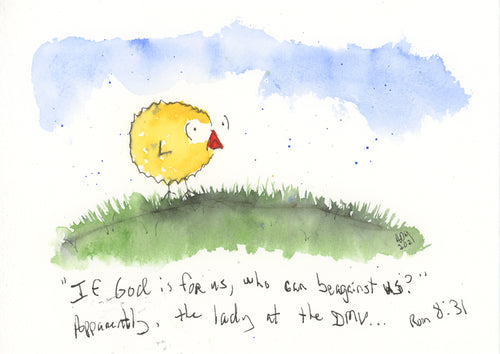 2021
"If God is for us, who can be against us?"
Apparently, the lady at the DMV... Rom 8:31